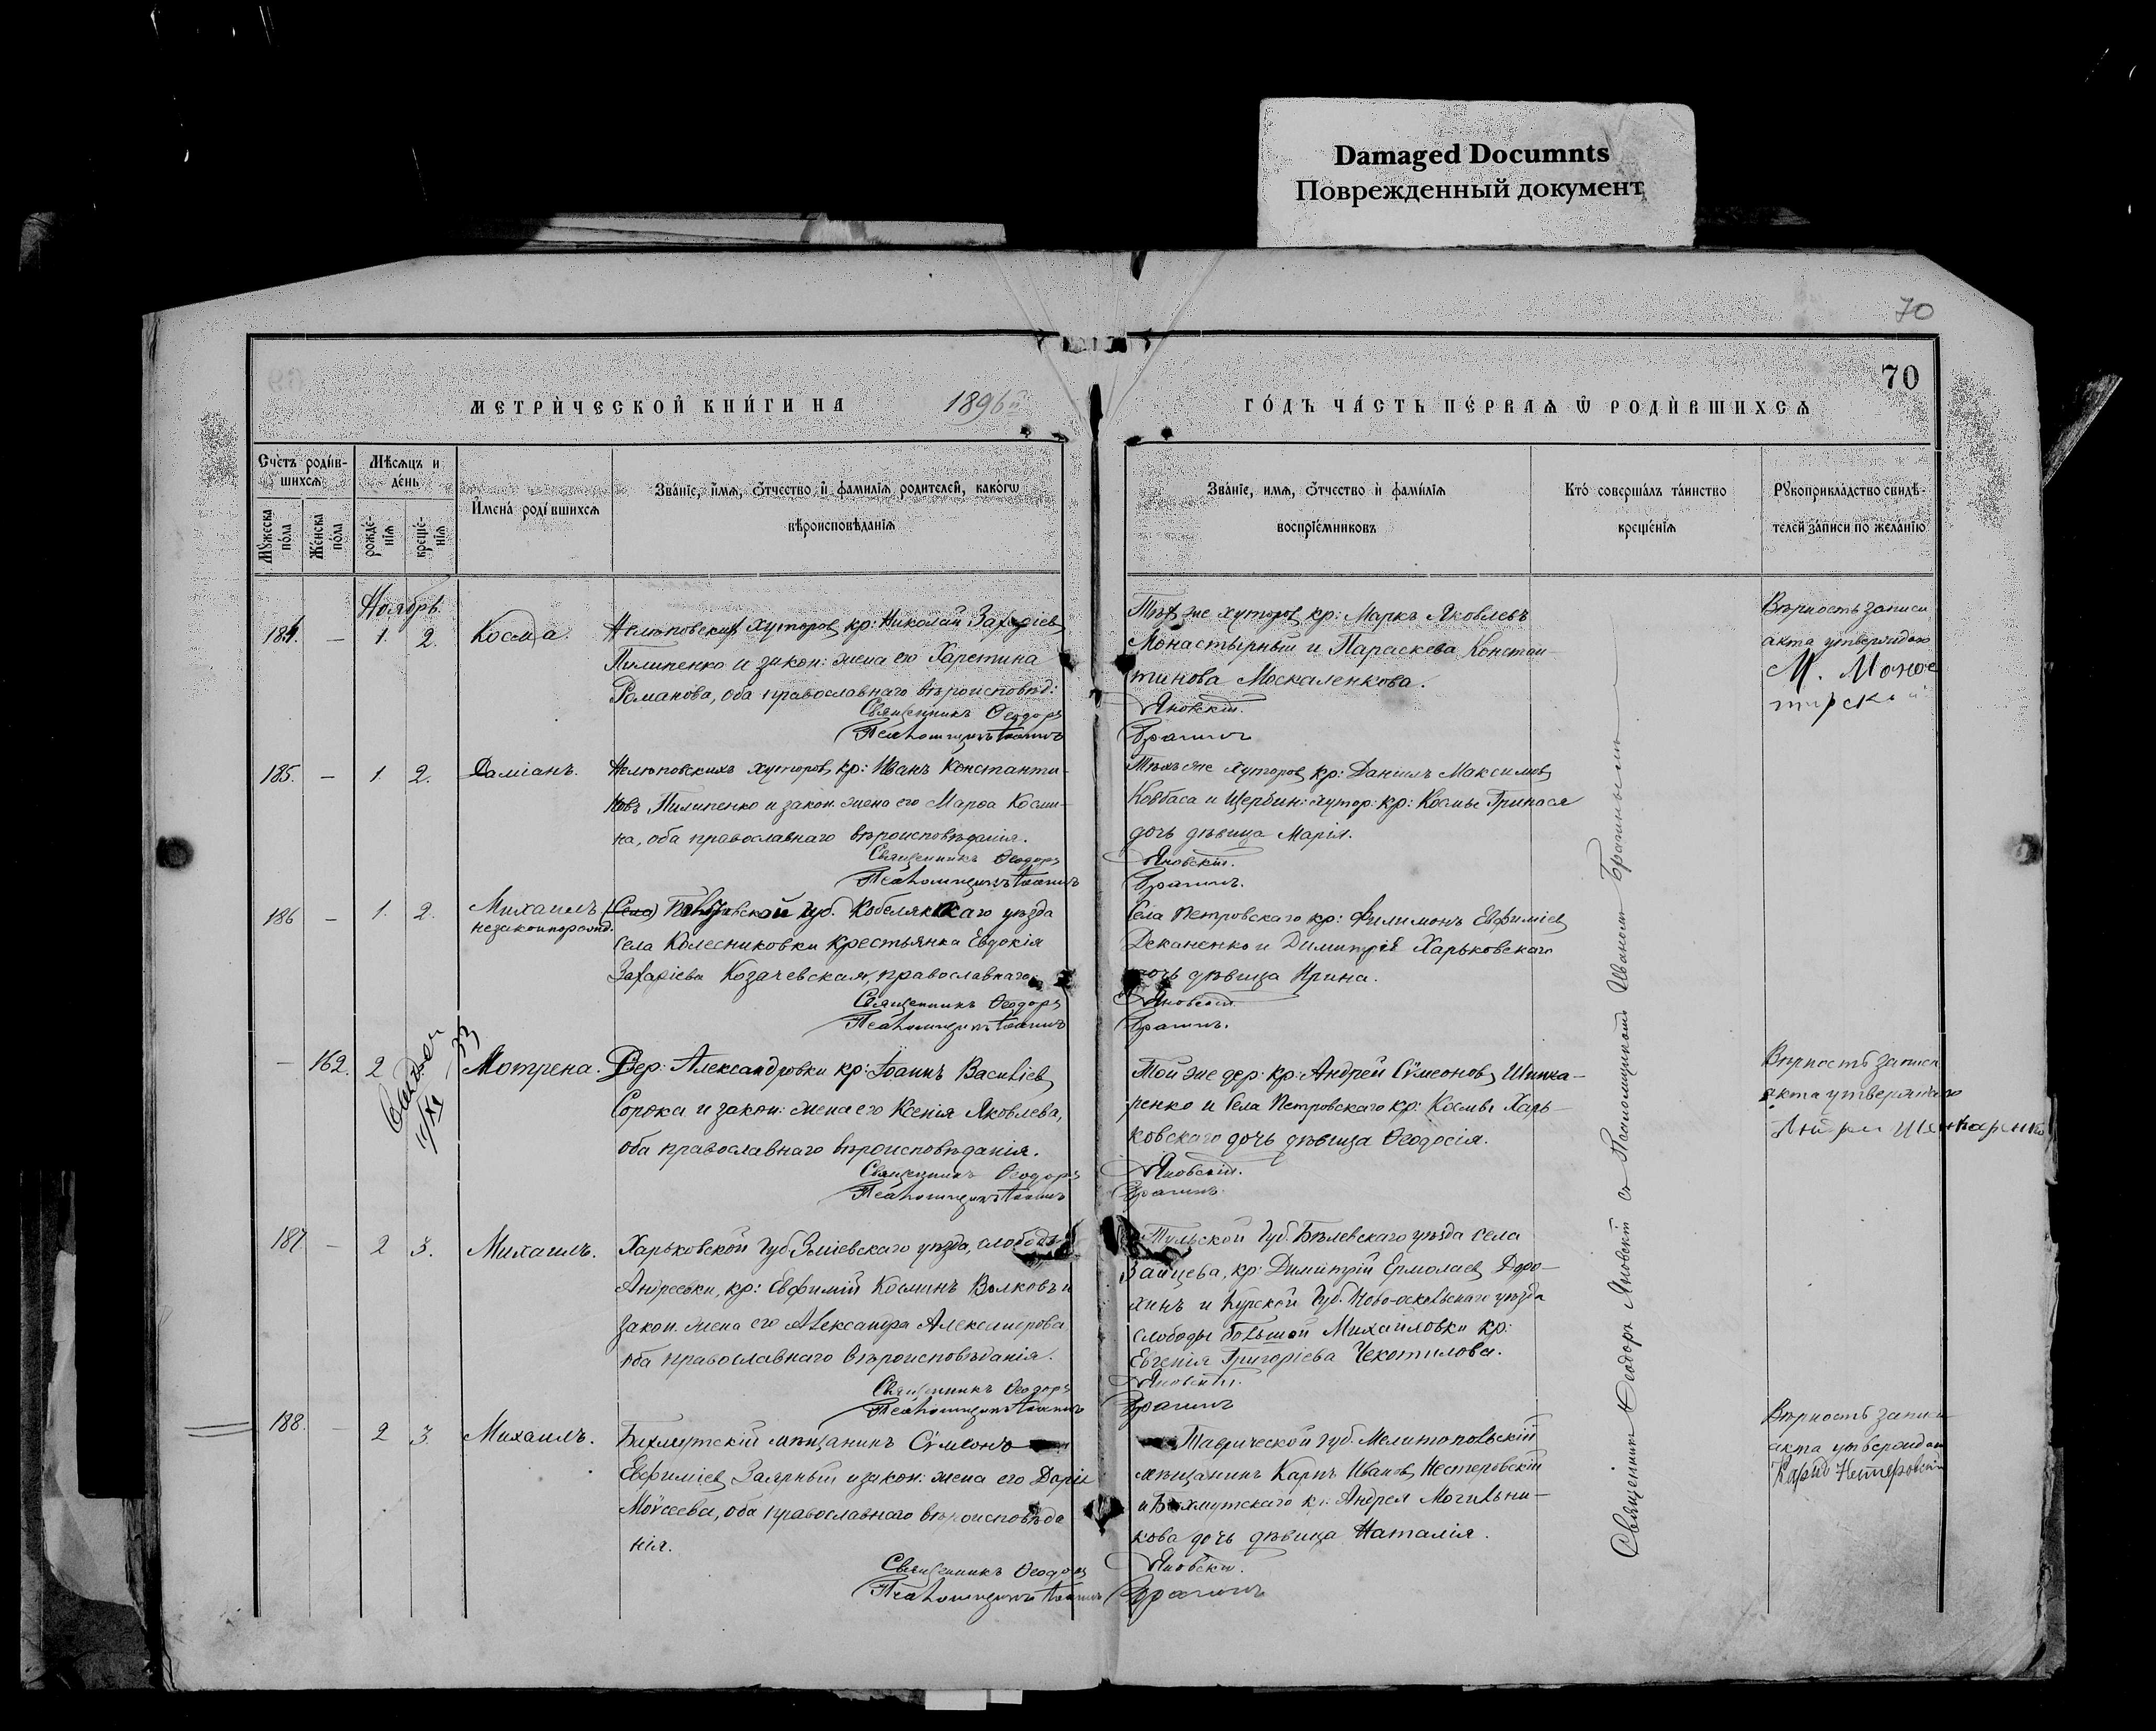 Damaged Documnts
Поврежденный документ
70
70
МЕТРИ́ЧЕСКОЙ КНИ́ГИ НА 1896й
ГО́ДЪ ЧА́СТЬ ПЕ́РВАѦ Ѿ РОДИ́ВШИХСѦ
Счетъ роди́в-
шихсѧ
Мѣсѧцъ и
де́нь
Мꙋжеска
по́ла
Же́нска
по́ла
рожде́-
нїѧ
креще́-
нїѧ
Имена́ роди́вшихсѧ
Зва́нїе, и́мѧ, ѻ҆́тчество и҆ фами́лїѧ родителей, како́гѡ
вѣроисповѣданїѧ
Зва́нїе, имѧ, ѻ҆́тчество и҆ фами́лїѧ
воспрїе́мниковъ
Кто́ соверша́лъ та́инство
креще́нїѧ
Рꙋкоприкла́дство свидѣ́-
телей за́писи по жела́нїю
Ноябрь
184. — 1. 2. Косма.
Нелюповскихъ хуторовъ кр: Николай Захаріевъ
Пилипенко и закон: жена его Харетина
Романова, оба православнаго вѣроисповѣд:
Священникъ Ѳеодоръ
Псаломщикъ Іоаннъ
Тѣхъ же хуторовъ кр: Маркъ Яковлевъ
Монастырный и Параскева Констан-
тинова Москаленкова.
Яновскій.
Брагинъ
Вѣрность записи
акта утверждаю
М.
185. — 1. 2. Даміанъ.
Нелюповскихъ хуторовъ кр: Иванъ Константи-
новъ Пилипенко и закон. жена его Марѳа Косми-
на, оба православнаго вѣроисповѣданія.
Священникъ Ѳеодоръ
Псаломщикъ Іоаннъ
Тѣхъ же хуторовъ кр: Даніилъ Максимовъ
Ковбаса и Щербин: хутор: кр: Космы
дочь дѣвица Марія.
Яновскій.
Брагинъ.
186 — 1. 2. Михаилъ
незаконорожд.
Полтавской губ. Кобелякскаго уѣзда
села Колесниковки крестьянка Евдокія
Захаріева Козачевская, православнаго.
Священникъ Ѳеодоръ
Псаломщикъ Іоаннъ
Села Петровскаго кр: Филимонъ Евфиміевъ
Деканенко и Димитрія Харьковскаго
дочь дѣвица Ирина.
Яновскій.
Брагинъ.
— 162. 2 Мотрена.
Дер: Александровки кр: Іоаннъ Васильевъ
Сорока и закон: жена его Ксенія Яковлева,
оба православнаго вѣроисповѣданія.
Священникъ Ѳеодоръ
Псаломщикъ Іоаннъ
Той же дер: кр: Андрей Сѵмеоновъ Шинка-
ренко и Села Петровскаго кр: Космы Харь-
ковскаго дочь дѣвица Ѳеодосія.
Яновскій.
Брагинъ.
Вѣрность записи
акта утверждаю
Андрей Шинкаренко
187. — 2 3. Михаилъ.
Харьковской губ. Зміевскаго уѣзда, слободы
Андреевки, кр: Евфимій Косминъ Волковъ и
закон. жена его Александра Александрова
оба православнаго вѣроисповѣданія.
Священникъ Ѳеодоръ
Псаломщикъ Іоаннъ
Тульской губ. Бѣлевскаго уѣзда села
Зайцева, кр: Димитрій Ермолаевъ Доро-
хинъ и Курской губ. Ново-оскольскаго уѣзда
слободы Большой Михайловки кр:
Евгенія Григоріева Чекотилова.
Яновскій.
Брагинъ
188. — 2 3. Михаилъ.
Бахмутскій мѣщанинъ Сѵмеонъ
Евфиміевъ Заярный и закон: жена его Дарія
Моѵсеева, оба православнаго вѣроисповѣда
нія.
Священникъ Ѳеодоръ
Псаломщикъ Іоаннъ
Таврической губ. Мелитопольскій
мѣщанинъ Карпъ Ивановъ Нестеровскій
и Бахмутскаго кр: Андрея Могильни-
кова дочь дѣвица Наталія.
Яновскій.
Брагинъ
Вѣрность записи
акта утверждаю
Карпъ Нестеровскій
Священникъ Ѳеодоръ Яновскій съ Псаломщикомъ Иваномъ Брагинымъ